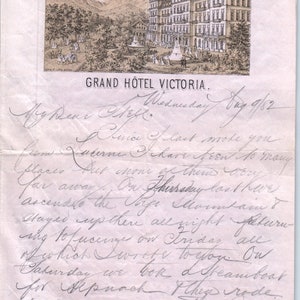 GRAND HÔTEL VICTORIA.
Wednesday Aug 9/82
My Dear
Since I last wrote you
from Lucerne I have been to many
places but none of them very
far away. On Thursday last we
ascended the Mountain &
stayed up there all night return
ing to Lucerne on Friday all
of which I wrote to you. On
Saturday we took a Steamboat
for Alpnach & rode